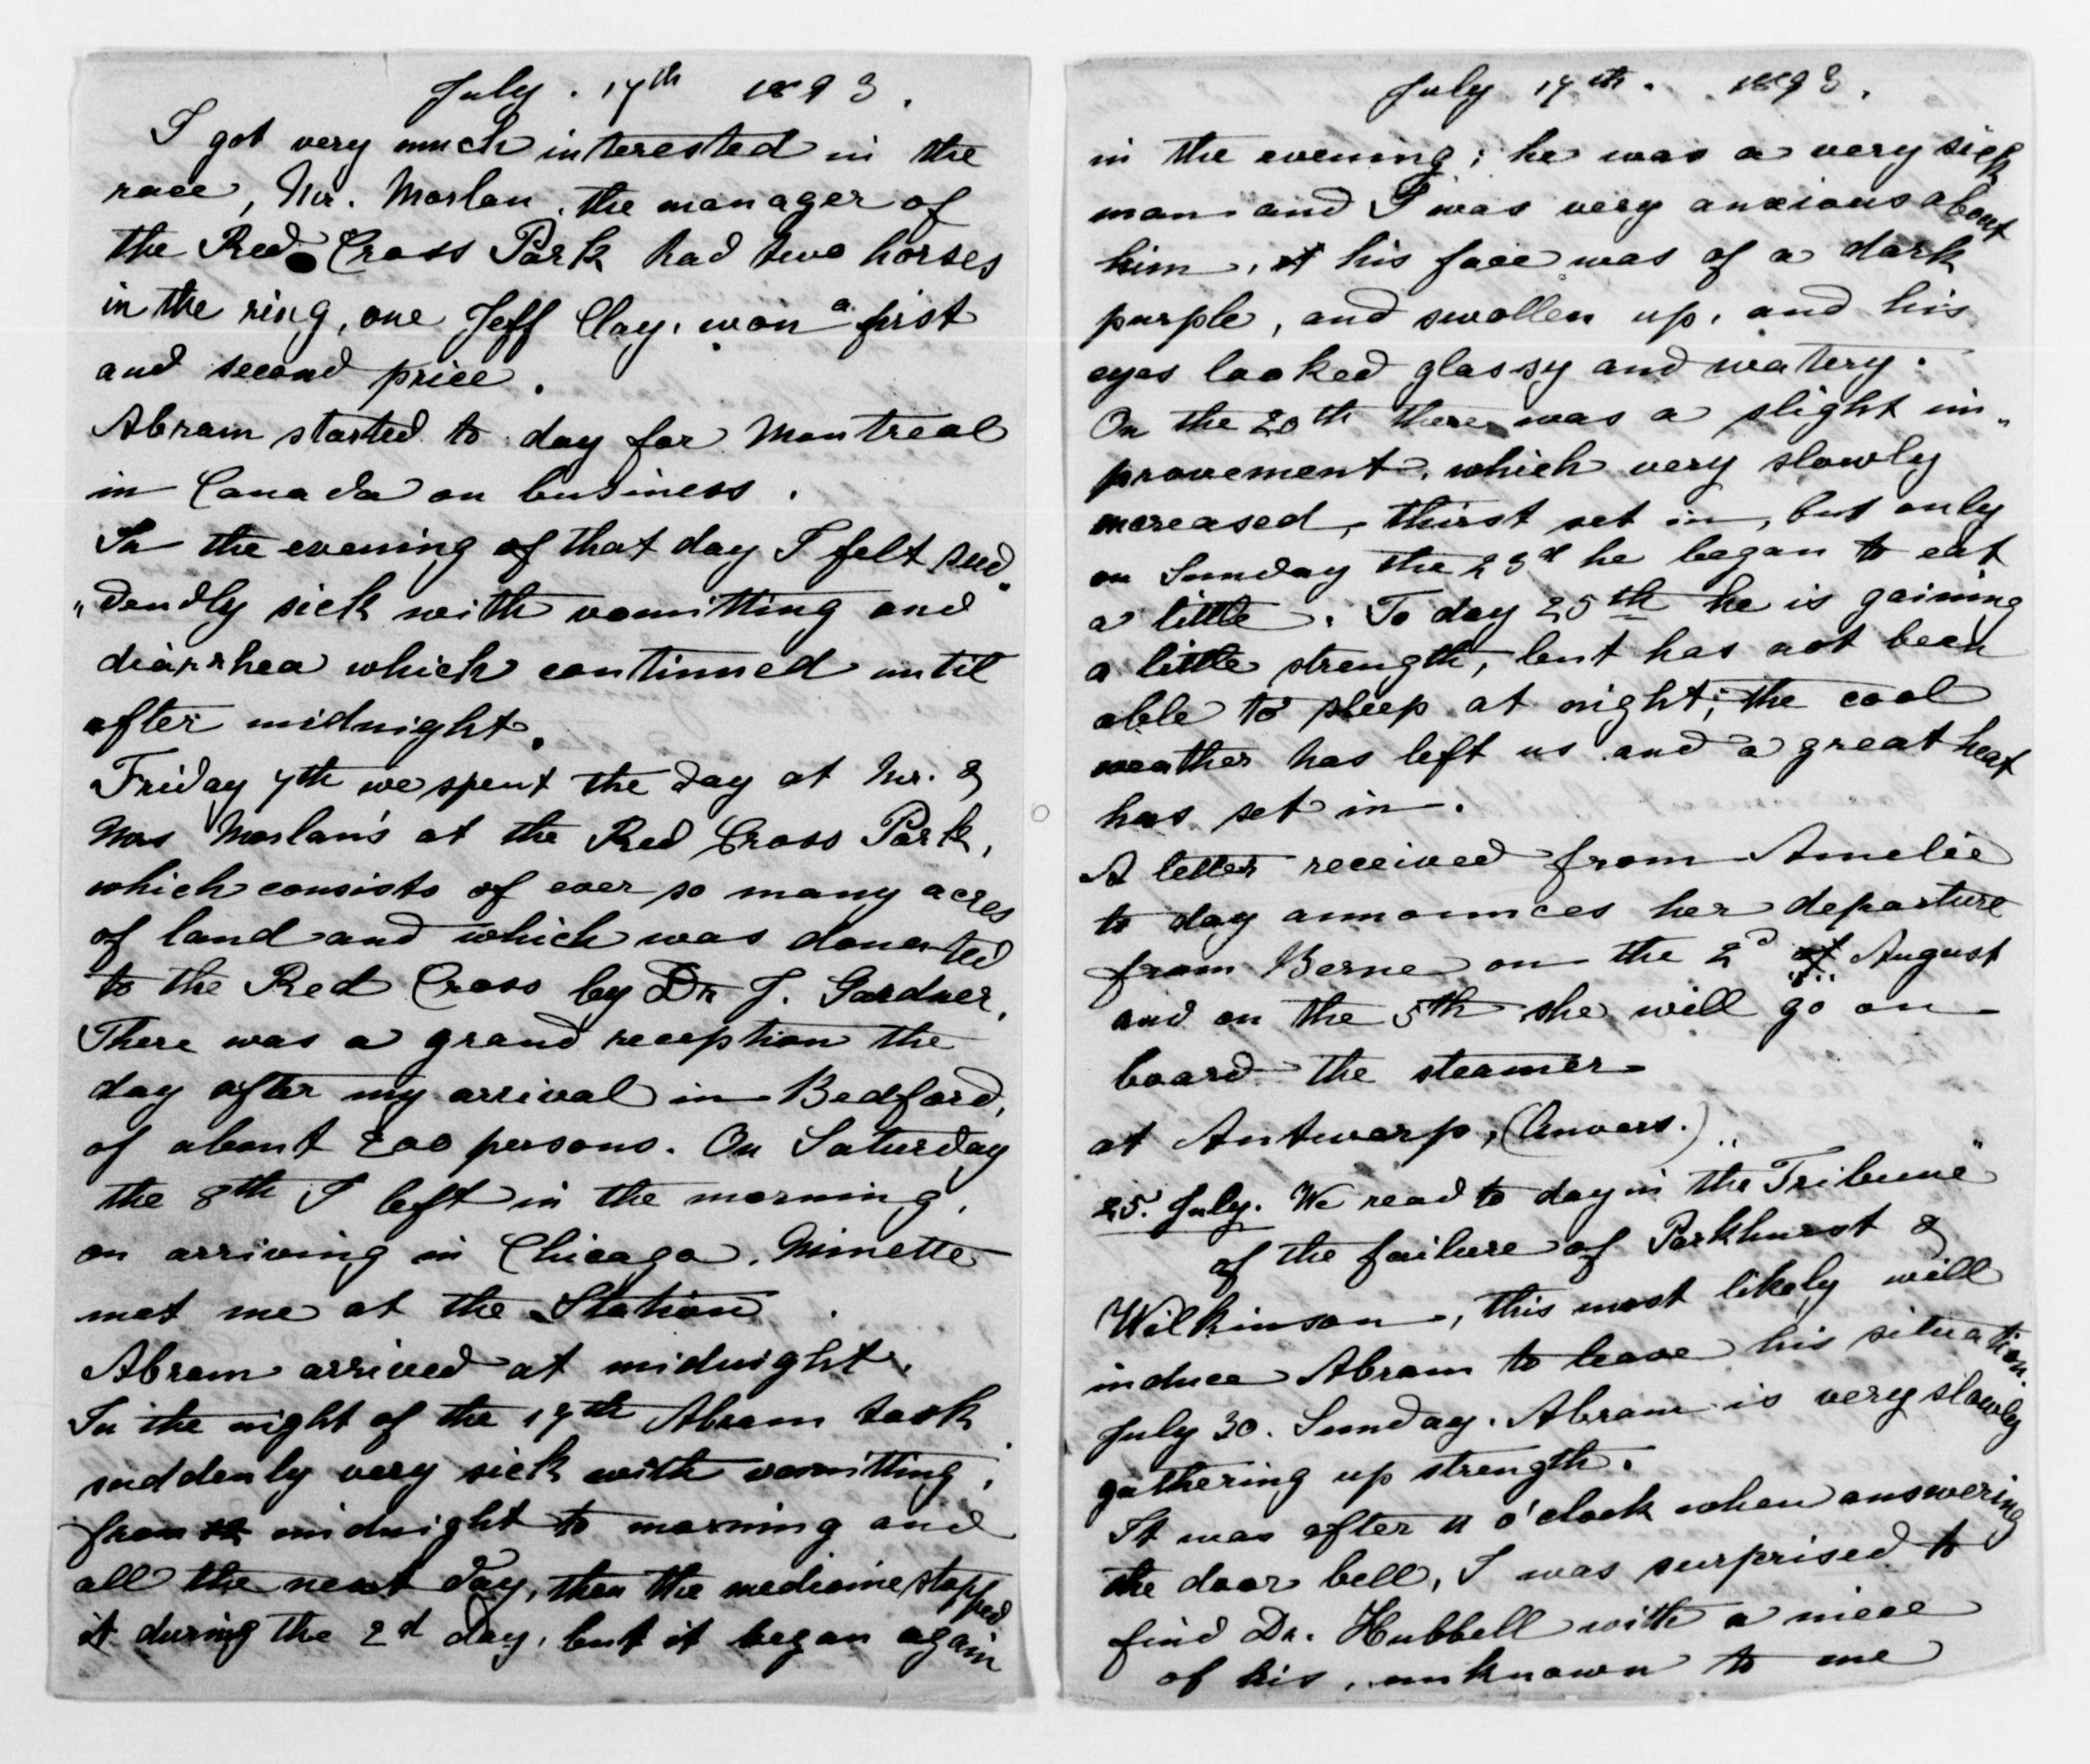 July. 17th 1893.
I got very much interested in the
race, Mr. Morlan, the manager of
the Red Cross Park had two horses
in the ring, one Jeff Clay, won a first
and second price.
Abram started to day for Montreal
in Canada on business.
In the evening of that day I felt sud„
„dendly sick with vomitting and
diarrhea which continued until
after midnight.
Friday 7th we spent the day at Mr. &
Mrs Morlan's at the Red Cross Park,
which consists of ever so many acres
of land and which was donated
to the Red Cross by Dr J. Gardner.
There was a grand reception the
day after my arrival in Bedford,
of about 200 persons. On Saturday
the 8th I left in the morning,
on arriving in Chicago, Minette
met me at the Station.
Abram arrived at midnight.
In the night of the 17th Abram took
suddenly very sick with vomitting,
from midnight to morning and
all the next day, then the medicine stopped
it during the 2d day, but it began again
July 17th. 1893.
in the evening; he was a very sick
man and I was very anxious about
him, his face was of a dark
purple, and swollen up, and his
eyes looked glassy and watery.
On the 20th there was a slight im„
provement, which very slowly
increased, thirst set in, but only
on Sunday the 23d he began to eat
a little. To day 25th he is gaining
a little strength, but has not been
able to sleep at night; the cool
weather has left us and a great heat
has set in.
A letter received from Amelie
to day announces her departure
from Berne on the 2d of August
and on the 5th she will go on
board the steamer
at Antwerp, (Anvers.)
25. July. We read to day in the "Tribune"
of the failure of Parkhurst &
Wilkinson, this most likely will
induce Abram to leave his situation.
July 30. Sunday. Abram is very slowly
gathering up strength.
It was after 11 o'clock when answering
the door bell, I was surprised to
find Dr. Hubbell with a niece
of his, unknown to me